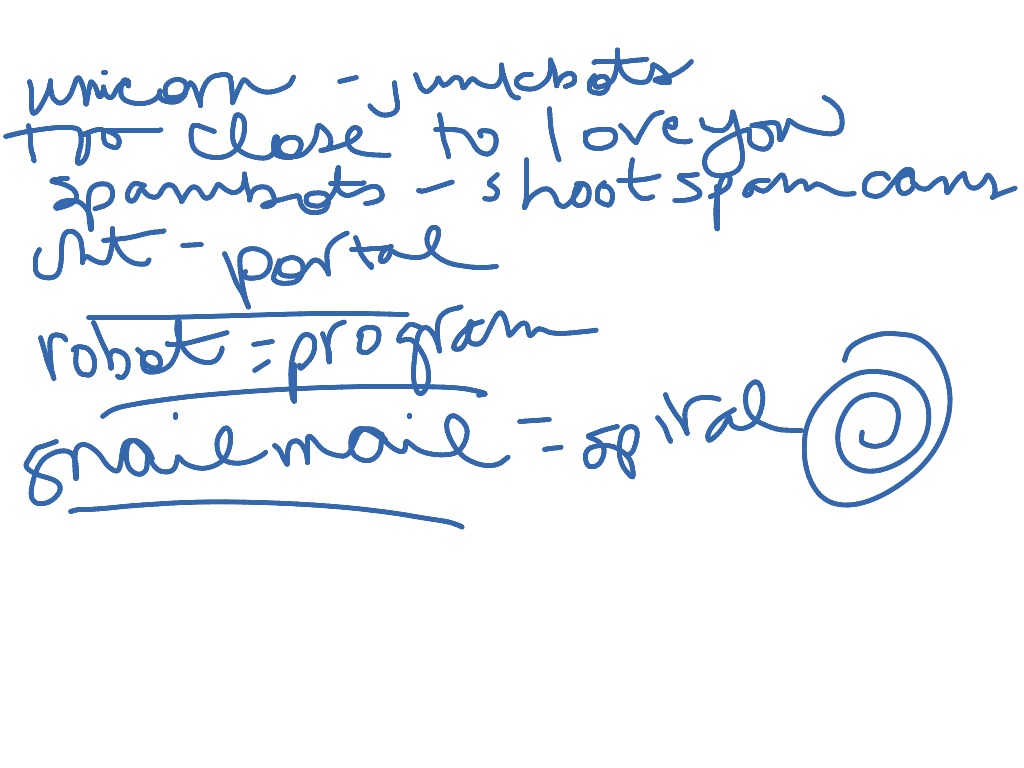 unicorn - junkbots
Too close to love you
spambots - shoot spam cans
- portal
robot = program
snailmail = spiral